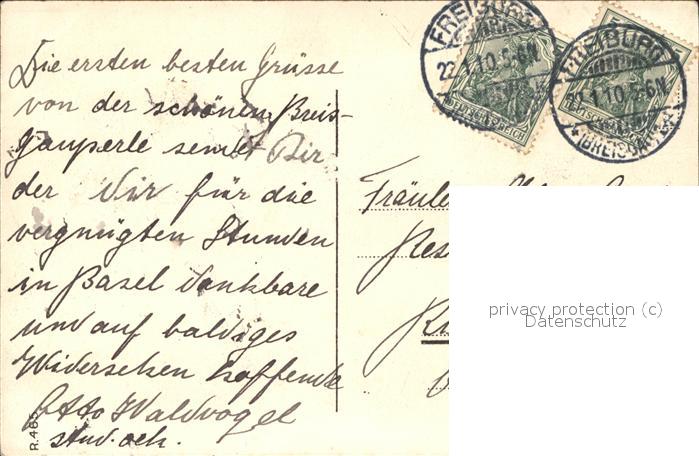 Die ersten besten Grüsse
von der schönen Breis-
gauperle sendet Dir
der Dir für die
vergnügten Stunden
in Basel dankbare
und auf baldiges
Widersehen hoffende
Otto Waldvogel
stud. oek.
R. 485
FREIBURG
22.1.10.5-6N
DEUTSCHES REICH
FREIBURG
22.1.10.5-6N
DEUTSCHES REICH
* (BREISGAU) *
Fräulein
privacy protection (c)
Datenschutz